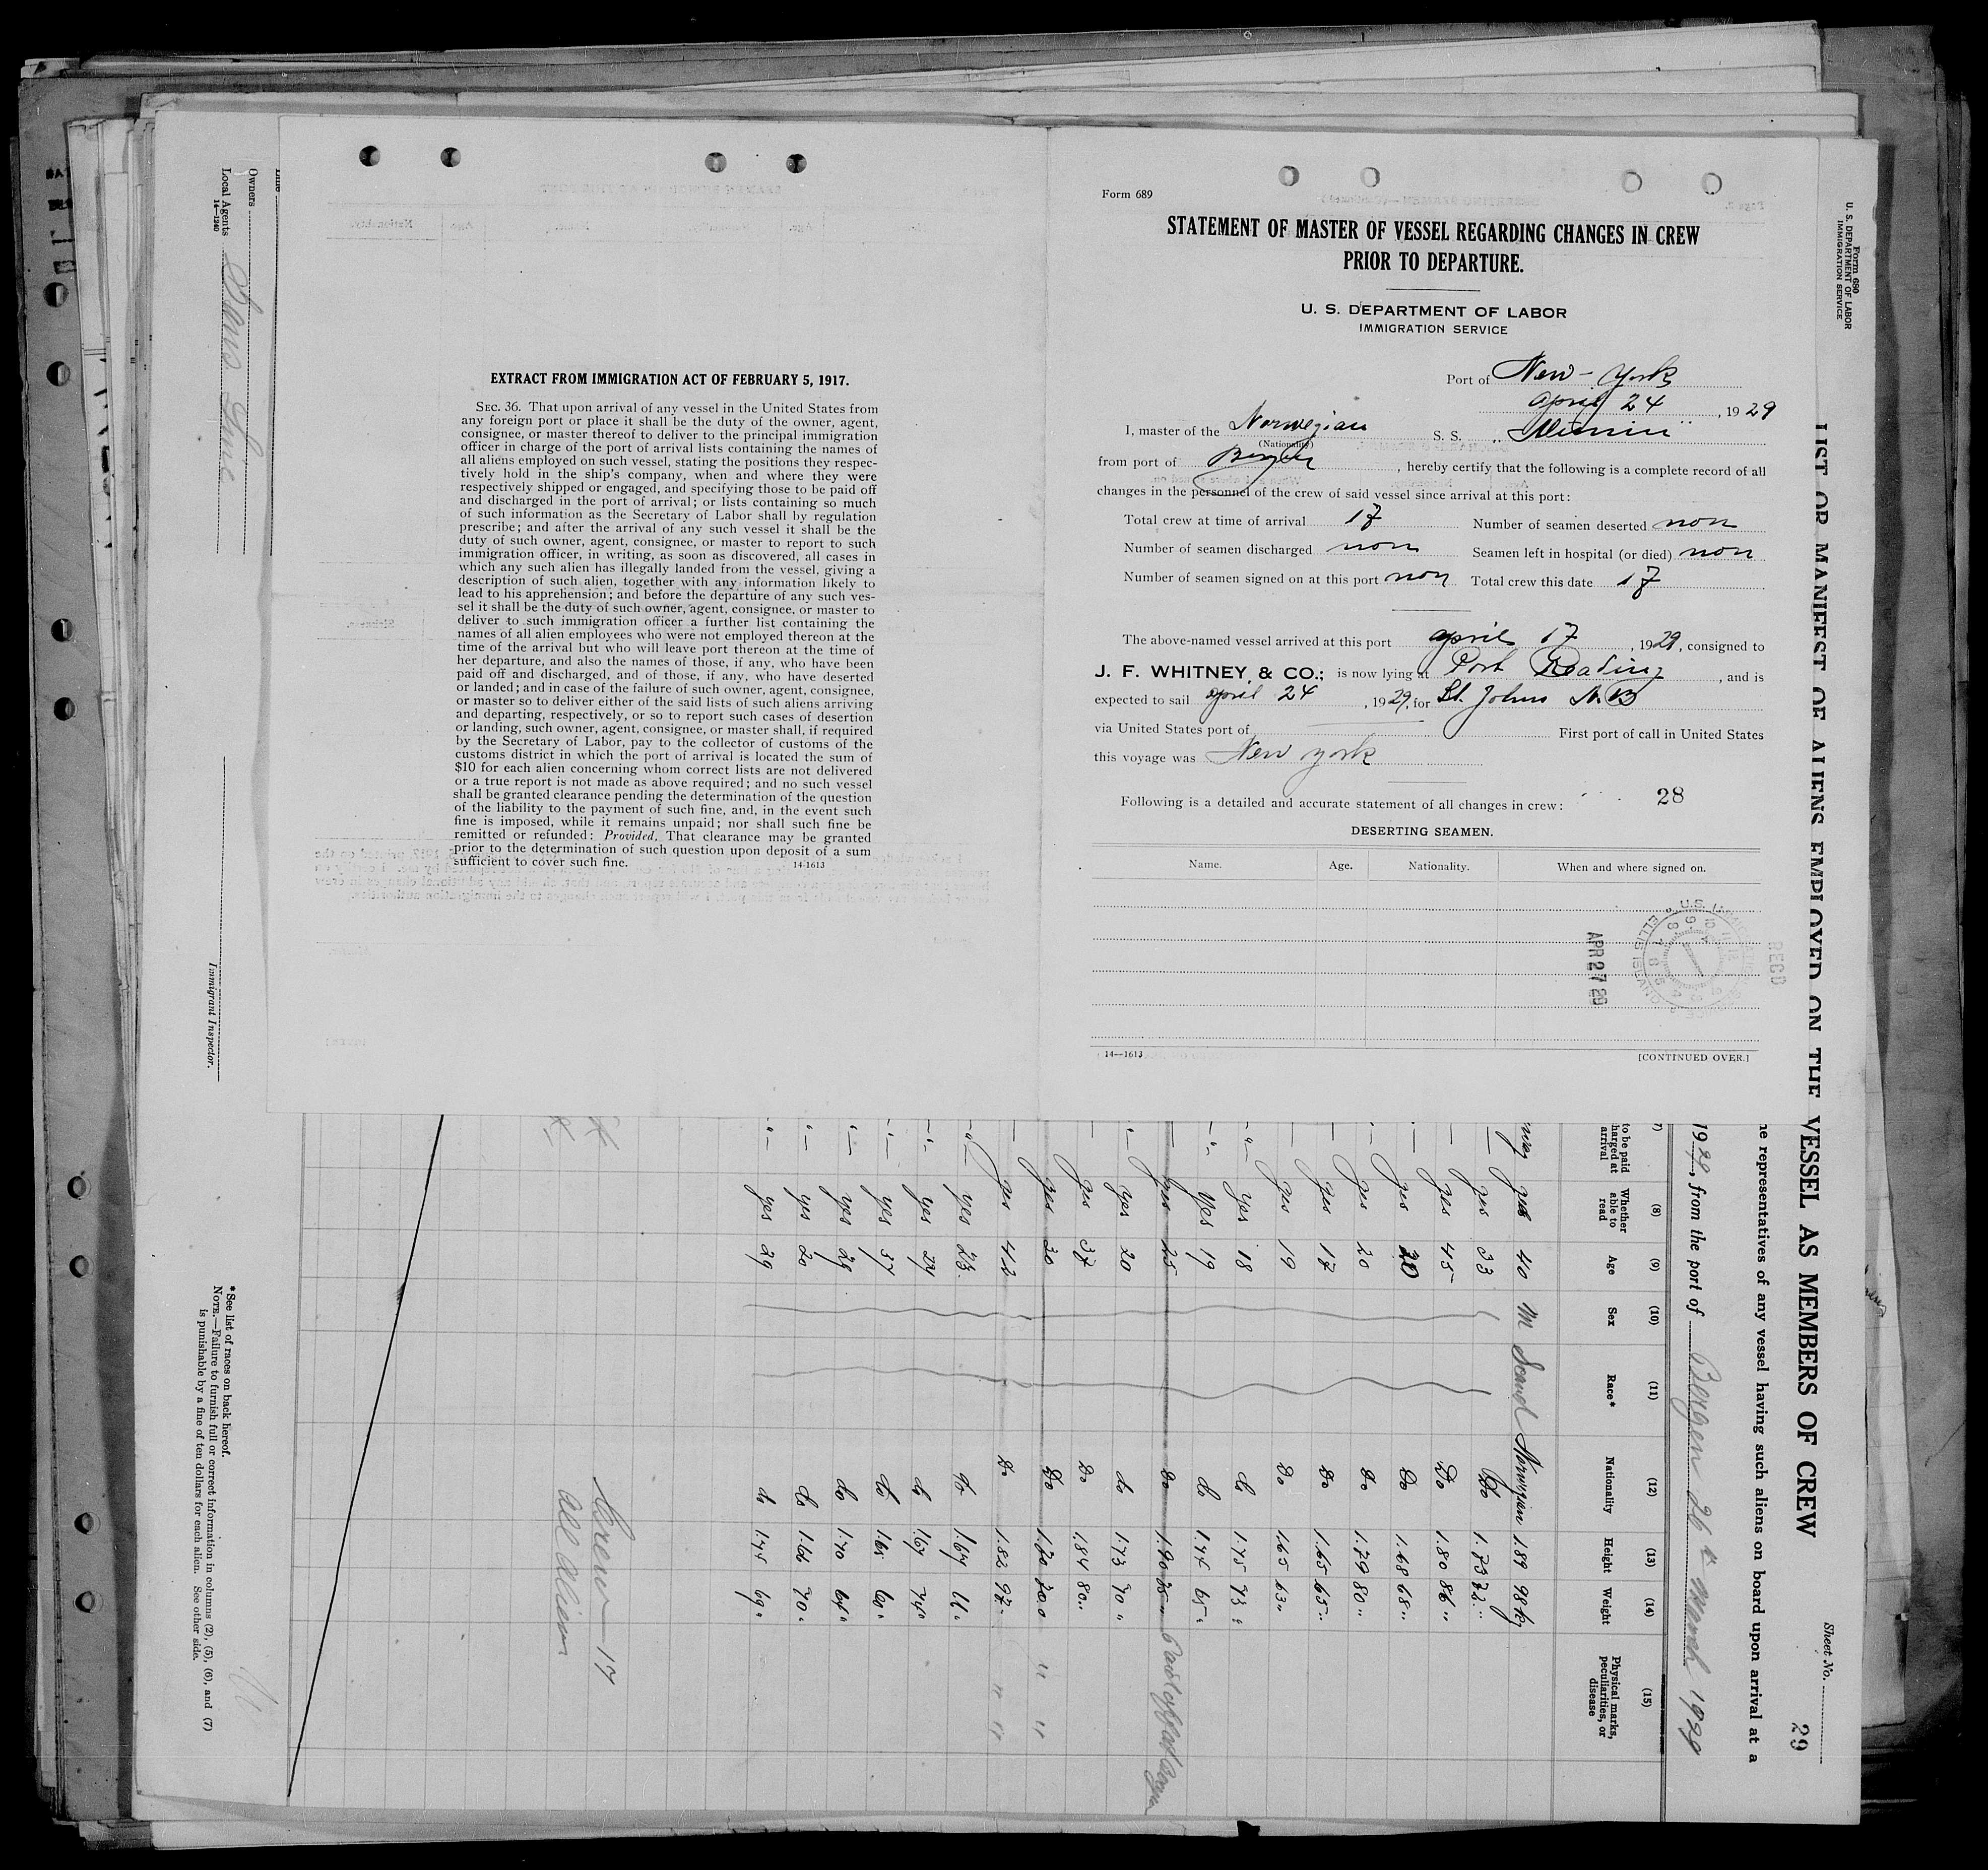 EXTRACT FROM IMMIGRATION ACT OF FEBRUARY 5, 1917.
SEC. 36. That upon arrival of any vessel in the United States from
any foreign port or place it shall be the duty of the owner, agent,
consignee, or master thereof to deliver to the principal immigration
officer in charge of the port of arrival lists containing the names of
all aliens employed on such vessel, stating the positions they respec-
tively hold in the ship's company, when and where they were
respectively shipped or engaged, and specifying those to be paid off
and discharged in the port of arrival; or lists containing so much
of such information as the Secretary of Labor shall by regulation
prescribe; and after the arrival of any such vessel it shall be the
duty of such owner, agent, consignee, or master to report to such
immigration officer, in writing, as soon as discovered, all cases in
which any such alien has illegally landed from the vessel, giving a
description of such alien, together with any information likely to
lead to his apprehension; and before the departure of any such ves-
sel it shall be the duty of such owner, agent, consignee, or master to
deliver to such immigration officer a further list containing the
names of all alien employees who were not employed thereon at the
time of the arrival but who will leave port thereon at the time of
her departure, and also the names of those, if any, who have been
paid off and discharged, and of those, if any, who have deserted
or landed; and in case of the failure of such owner, agent, consignee,
or master so to deliver either of the said lists of such aliens arriving
and departing, respectively, or so to report such cases of desertion
or landing, such owner, agent, consignee, or master shall, if required
by the Secretary of Labor, pay to the collector of customs of the
customs district in which the port of arrival is located the sum of
$10 for each alien concerning whom correct lists are not delivered
or a true report is not made as above required; and no such vessel
shall be granted clearance pending the determination of the question
of the liability to the payment of such fine, and, in the event such
fine is imposed, while it remains unpaid; nor shall such fine be
remitted or refunded: Provided, That clearance may be granted
prior to the determination of such question upon deposit of a sum
sufficient to cover such fine.
14-1613
Form 689
STATEMENT OF MASTER OF VESSEL REGARDING CHANGES IN CREW
PRIOR TO DEPARTURE.
U. S. DEPARTMENT OF LABOR
IMMIGRATION SERVICE
Port of New-York
april 24, 1929
I, master of the Norwegian S. S.
(Nationality)
from port of Bergen, hereby certify that the following is a complete record of all
changes in the personnel of the crew of said vessel since arrival at this port:
Total crew at time of arrival 17 Number of seamen deserted non
Number of seamen discharged non Seamen left in hospital (or died) non
Number of seamen signed on at this port non Total crew this date 17
The above-named vessel arrived at this port april 17, 1929, consigned to
J. F. WHITNEY & CO.; is now lying at Port Reading, and is
expected to sail april 24, 1929, for St. Johns N.B
via United States port of First port of call in United States
this voyage was New york
Following is a detailed and accurate statement of all changes in crew: 28
DESERTING SEAMEN.
Name. Age. Nationality. When and where signed on.
APR 27 29
RECD
U.S.
ELLIS ISLAND
14-1613
[CONTINUED OVER.]
Form 680
U. S. DEPARTMENT OF LABOR
IMMIGRATION SERVICE
LIST OR MANIFEST OF ALIENS EMPLOYED ON THE VESSEL AS MEMBERS OF CREW
Sheet No.
29
representatives of any vessel having such aliens on board upon arrival at a
1929, from the port of Bergen 26 March 1929
to be paid arrival
(8) Whether able to read
(9) Age
(10) Sex
(11) Race*
(12) Nationality
(13) Height
(14) Weight
(15) Physical marks, peculiarities, or disease
yes 40 M Scand Norwegian 1.89 98 kg
yes 33 Do 1.73 72 "
yes 45 Do 1.80 86 "
yes 20 Do 1.68 68 "
yes 20 Do 1.79 80 "
yes 17 Do 1.65 65 "
yes 19 Do 1.65 63 "
yes 18 do 1.75 73 "
yes 19 do 1.75 65 "
yes 25 Do
yes 20 do 1.73 70 "
yes 37 Do 1.84 80 "
yes 30 Do
yes 42 Do 1.82 97 "
yes 23 do 1.67
yes do 1.67 74 "
yes 37 do 1.65 60 "
yes 29 do 1.70 64 "
yes 20 do 1.66 70 "
yes 29 do 1.75 69 "
Crew 17
all alien
Owners
Local Agents
14-1240
Immigrant Inspector.
* See list of races on back hereof.
NOTE.—Failure to furnish full or correct information in columns (2), (5), (6), and (7)
is punishable by a fine of ten dollars for each alien. See other side.